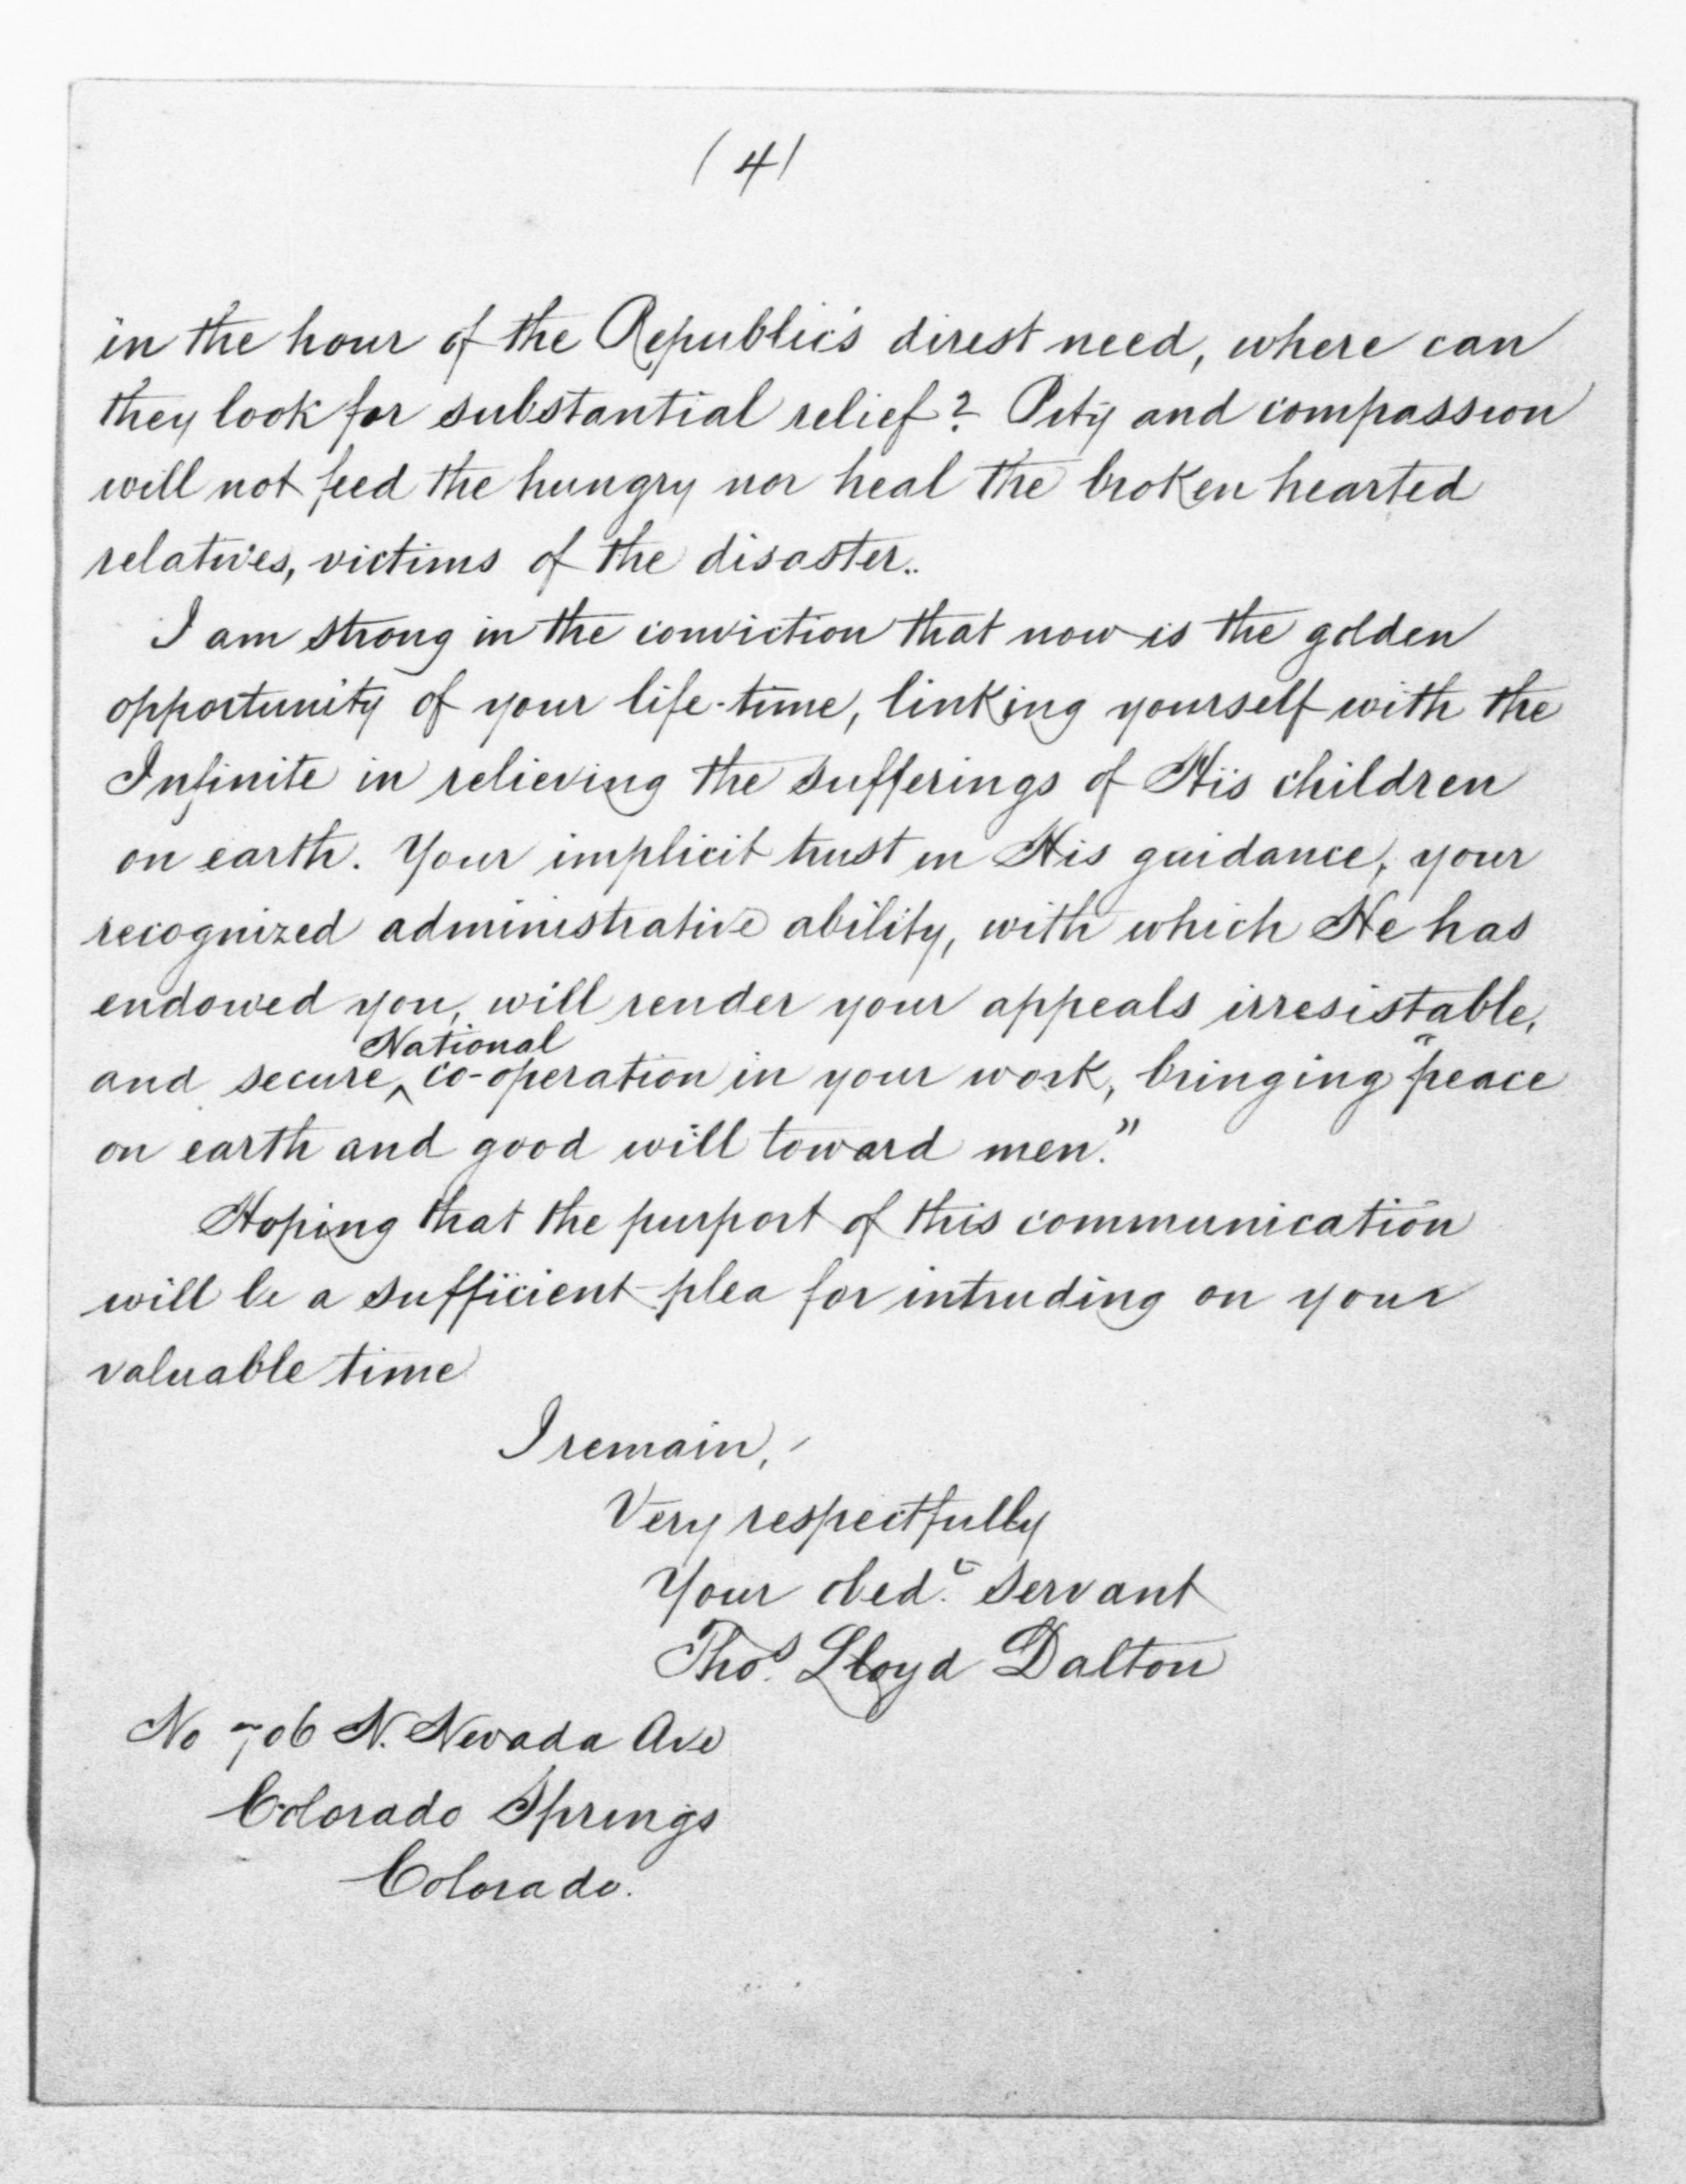 (4)
in the hour of the Republic's direst need, where can
they look for substantial relief? Pity and compassion
will not feed the hungry nor heal the broken hearted
relatives, victims of the disaster..
I am strong in the conviction that now is the golden
opportunity of your life-time, linking yourself with the
Infinite in relieving the sufferings of His children
on earth. Your implicit trust in His guidance, your
recognized administrative ability, with which He has
endowed you, will render your appeals irresistable,
National
and secure ‸ co-operation in your work, bringing "peace
on earth and good will toward men."
Hoping that the purport of this communication
will be a sufficient plea for intruding on your
valuable time
I remain,
Very respectfully
Your obedt servant
Thos. Lloyd Dalton
No 706 N. Nevada Ave
Colorado Springs
Colorado.